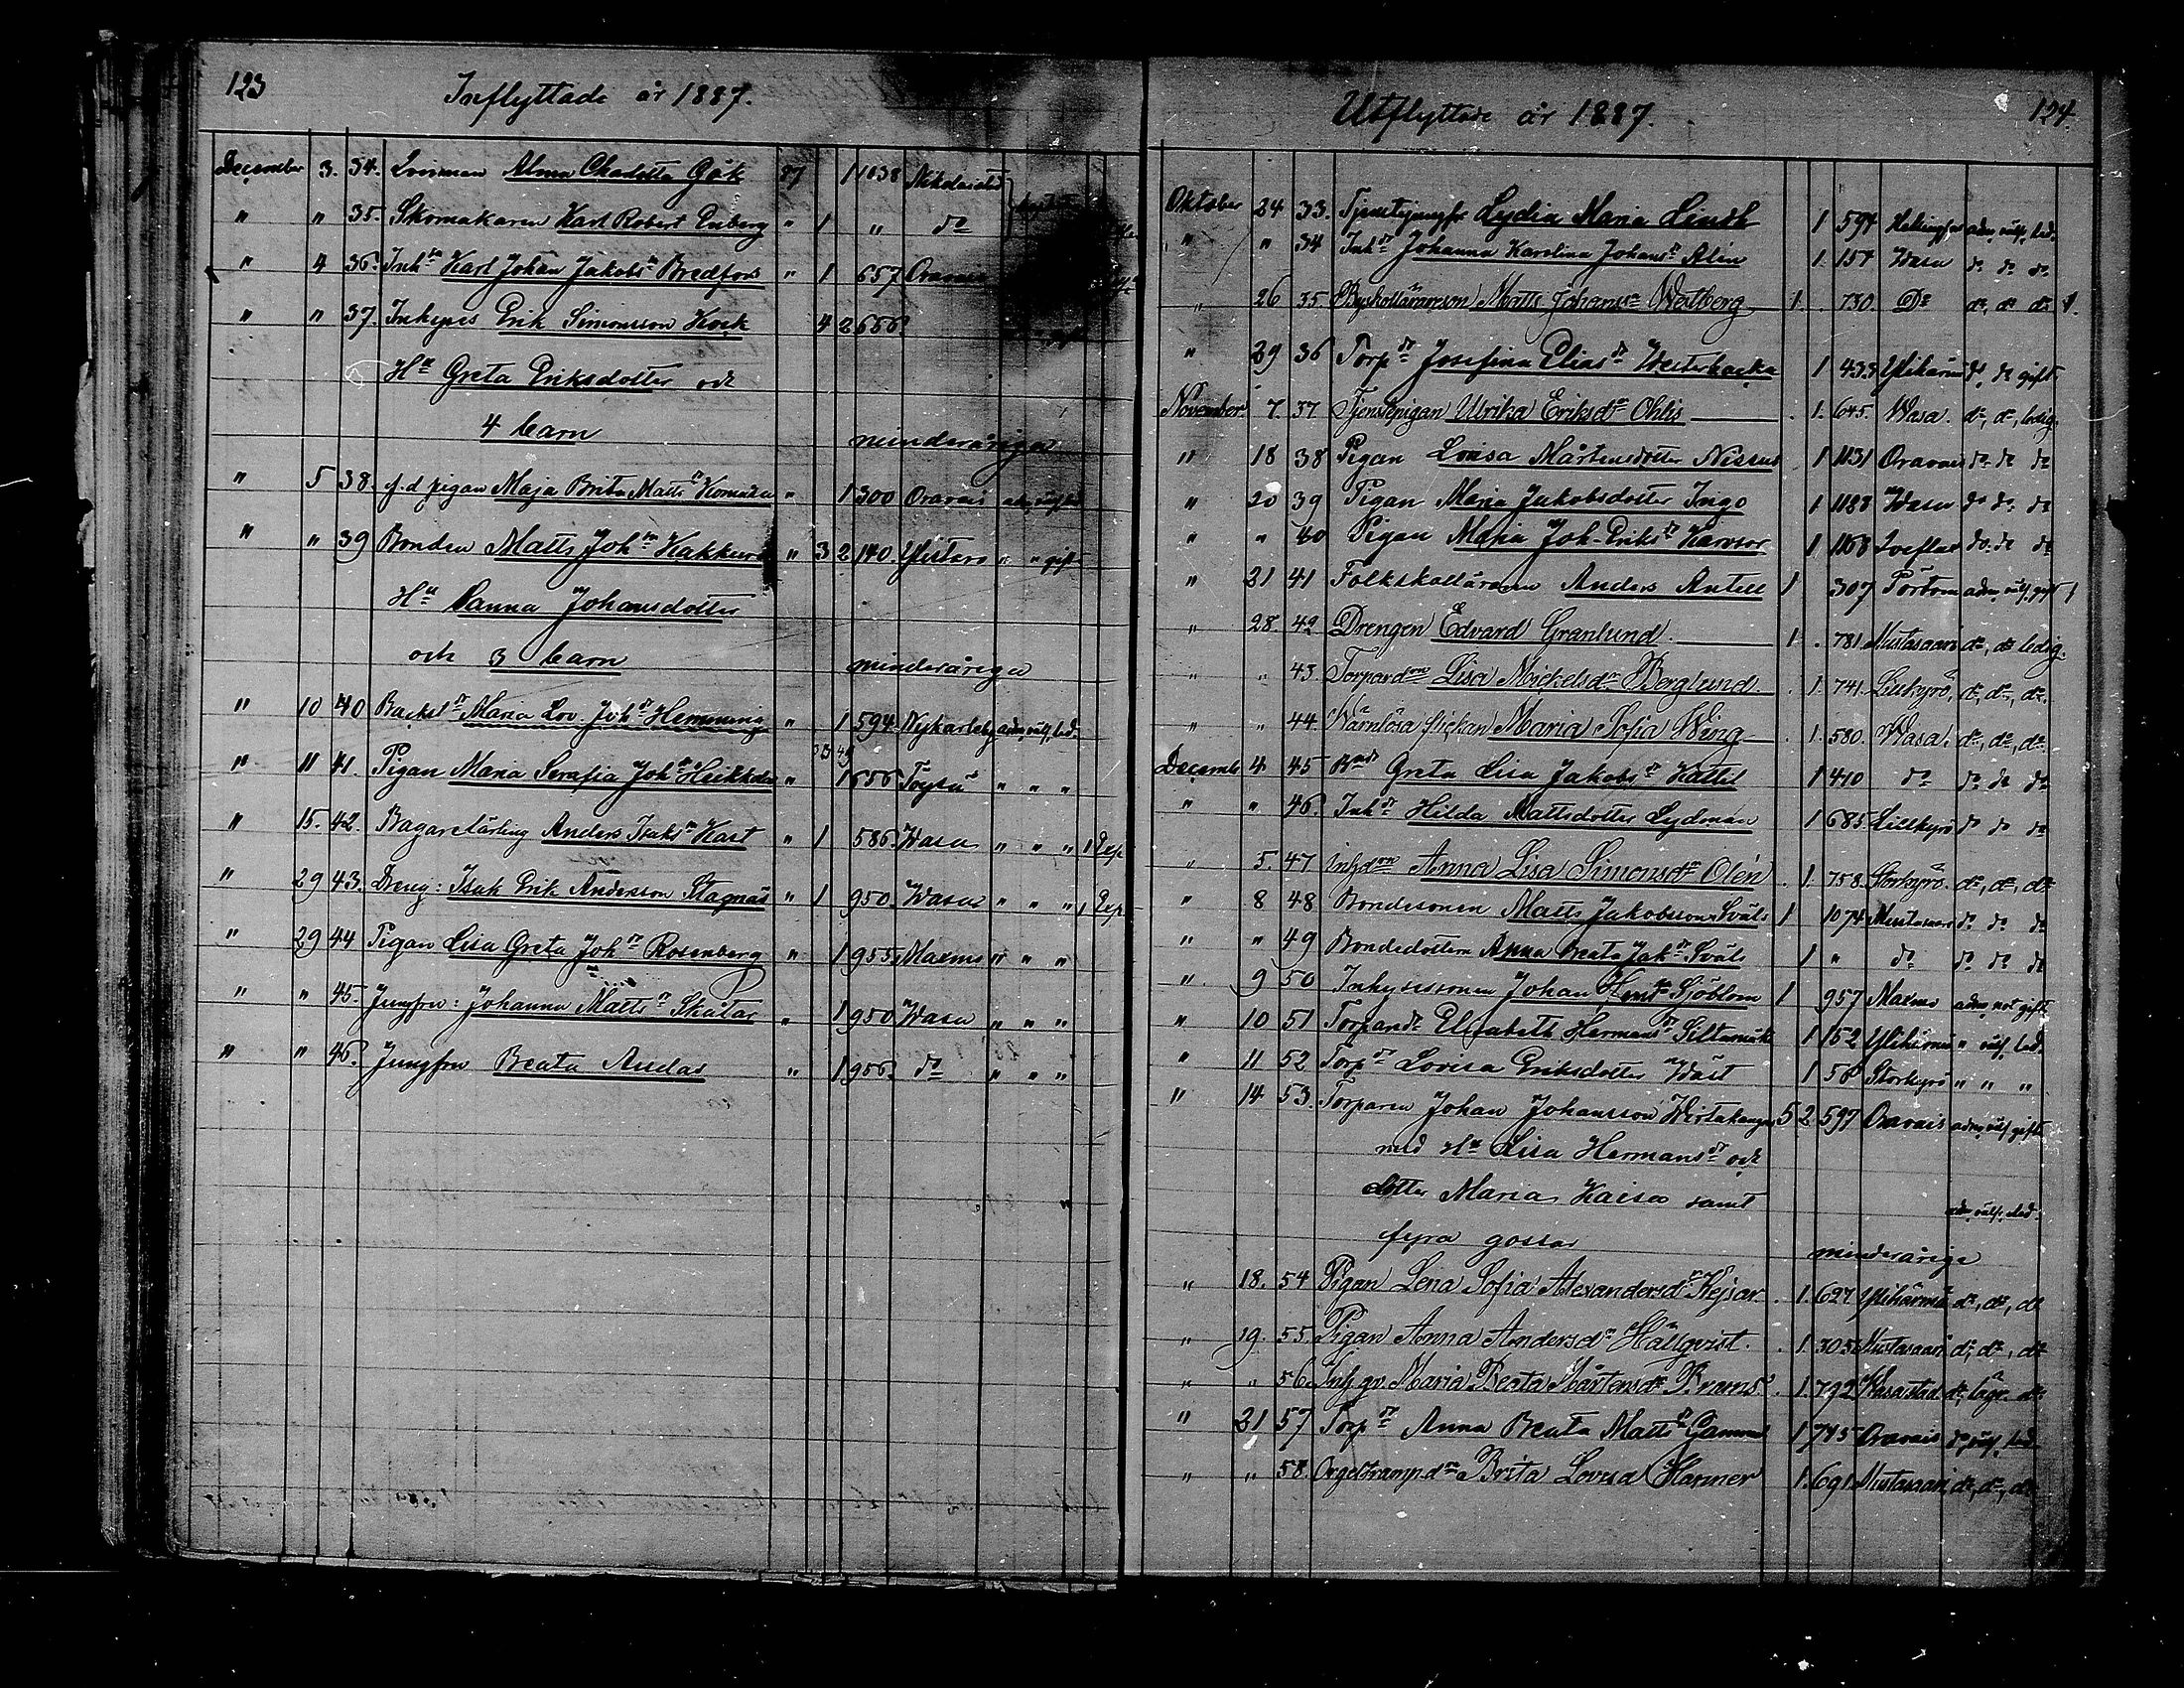 123
Inflyttade år 1887.
December 3. 34. Qvinnan Alma Charlotta Gök 87 1 1038 Nikolaistad
" " 35. Skomakaren Karl Robert Enberg " 1 " do
" 4 36. Inhsn Karl Johan Jakobsn Bredfors " 1 657 Oravais
" " 37. Inhyses Erik Simonsson Kock 4 2 656
Hu Greta Eriksdotter och
4 barn minderåriga
" 5 38. f.d pigan Maja Brita Mattsdr " 1 300 Oravais
" " 39 Bonden Matts Johsn Kakkuri " 3 2 140. Ylistaro " " gift
Hu Sanna Johansdotter
och 3 barn minderåriga
" 10 40 Backstdr Maria Lov. Johdr Hemming " 1 594 Nykarleby adm, välf, led.
" 11 41. Pigan Maria Serafia Johdr Heikkilä " 1 656 Töysä " " "
" 15. 42. Bagarelärling Anders Isaksn Kast " 1 586. Wasa " " " 1 Exp
" 29 43. Dreng: Isak Erik Andersson Stagnäs " 1 950. Wasa " " " 1 Exp
" 29 44 Pigan Lisa Greta Johdr Rosenberg " 1 955. Maxmo " " "
" " 45. Jungfru: Johanna Mattsdr Skatar " 1 950 Wasa " " "
" " 46. Jungfru Beata Andas " 1 956. do " " "
Utflyttade år 1887.
124.
Oktober 24 33. Tjenstejungfr Lydia Maria Lindh 1 594 Helsingfors adm, välf, led.
" " 34 Inhdr Johanna Karolina Johansdr Alén 1 157 Wasa do do do
" 26 35. Byskollärareson Matts Johanssn Westberg 1. 730. Do do, do do 1.
" 29 36 Torpdr Josefina Eliasdr Westerbacka 1 433 Ylihärmä do do gift
November 7. 37 Tjenstepigan Ulrika Eriksdr Ohlis 1. 645. Wasa. do, do, ledig.
" 18 38 Pigan Lovisa Mårtensdotter Nissus 1 1131 Oravais do do do
" 20 39 Pigan Maria Jakobsdotter Ingo 1 1188 Wasa do do do
" " 40 Pigan Maria Joh-Eriksdr Karvsor 1 1168 Qveflax do do do
" 21 41 Folkskolläraren Anders Antell 1 307 Pörtom adm, välf, gift 1
" 28. 42 Drengen Edvard Granlund. 1. 781 Mustasaari do, do ledig.
" " 43 Torpardr Lisa Mickelsdr Berglund. 1. 741. Lillkyrö, do, do, do.
" " 44. Wärnlösa flickan Maria Sofia Wing 1. 580. Wasa. do, do, do.
December 4 45 Bondr Greta Lisa Jakobsdr Kattil 1 410 do do do do
" " 46. Inhdr Hilda Mattsdotter Lydman 1 685. Lillkyrö do do do
" 5. 47 Inhdr Anna Lisa Simonsdr Olén 1. 758. Storkyrö. do, do, do
" 8 48 Bondesonen Matts Jakobsson Sväls 1 1074 Mustasaari do do do
" " 49 Bondedottern Anna Beata Jakdr Sväls 1 " do do do do
" 9 50 Inhysessonen Johan Hindsn Sjöblom 1 957 Maxmo adm, not gift
" 10 51 Torpardr Elisabeth Hermansdr Siltamäki 1 152 Ylihärmä " välf, led.
" 11 52 Torpdr Lovisa Eriksdotter Wäst 1 58 Storkyrö " " "
" 14 53. Torparen Johan Johansson Wirtakangas 5 2 597 Oravais adm, välf, gift
med Hu Lisa Hermansdr och
dotter Maria Kaisa samt adm, välf, led.
fyra gossar minderåriga
" 18. 54 Pigan Lena Sofia Alexandersdr Kejsar. 1. 627 Ylihärmä do, do, do
" 19. 55. Pigan Anna Andersdr Hällqvist. 1. 305. Mustasaari do, do, do
" " 56. Inh. qv. Maria Beata Mårtensdr Brams. 1. 792 Wasastad do, lägr. do
" 21 57 Torpdr Anna Beata Mattsdr Gammal 1 745 Oravais do välf, led.
" " 58 Orgeltramp. dr Brita Lovisa Hanner 1. 691 Mustasaari, do, do, do